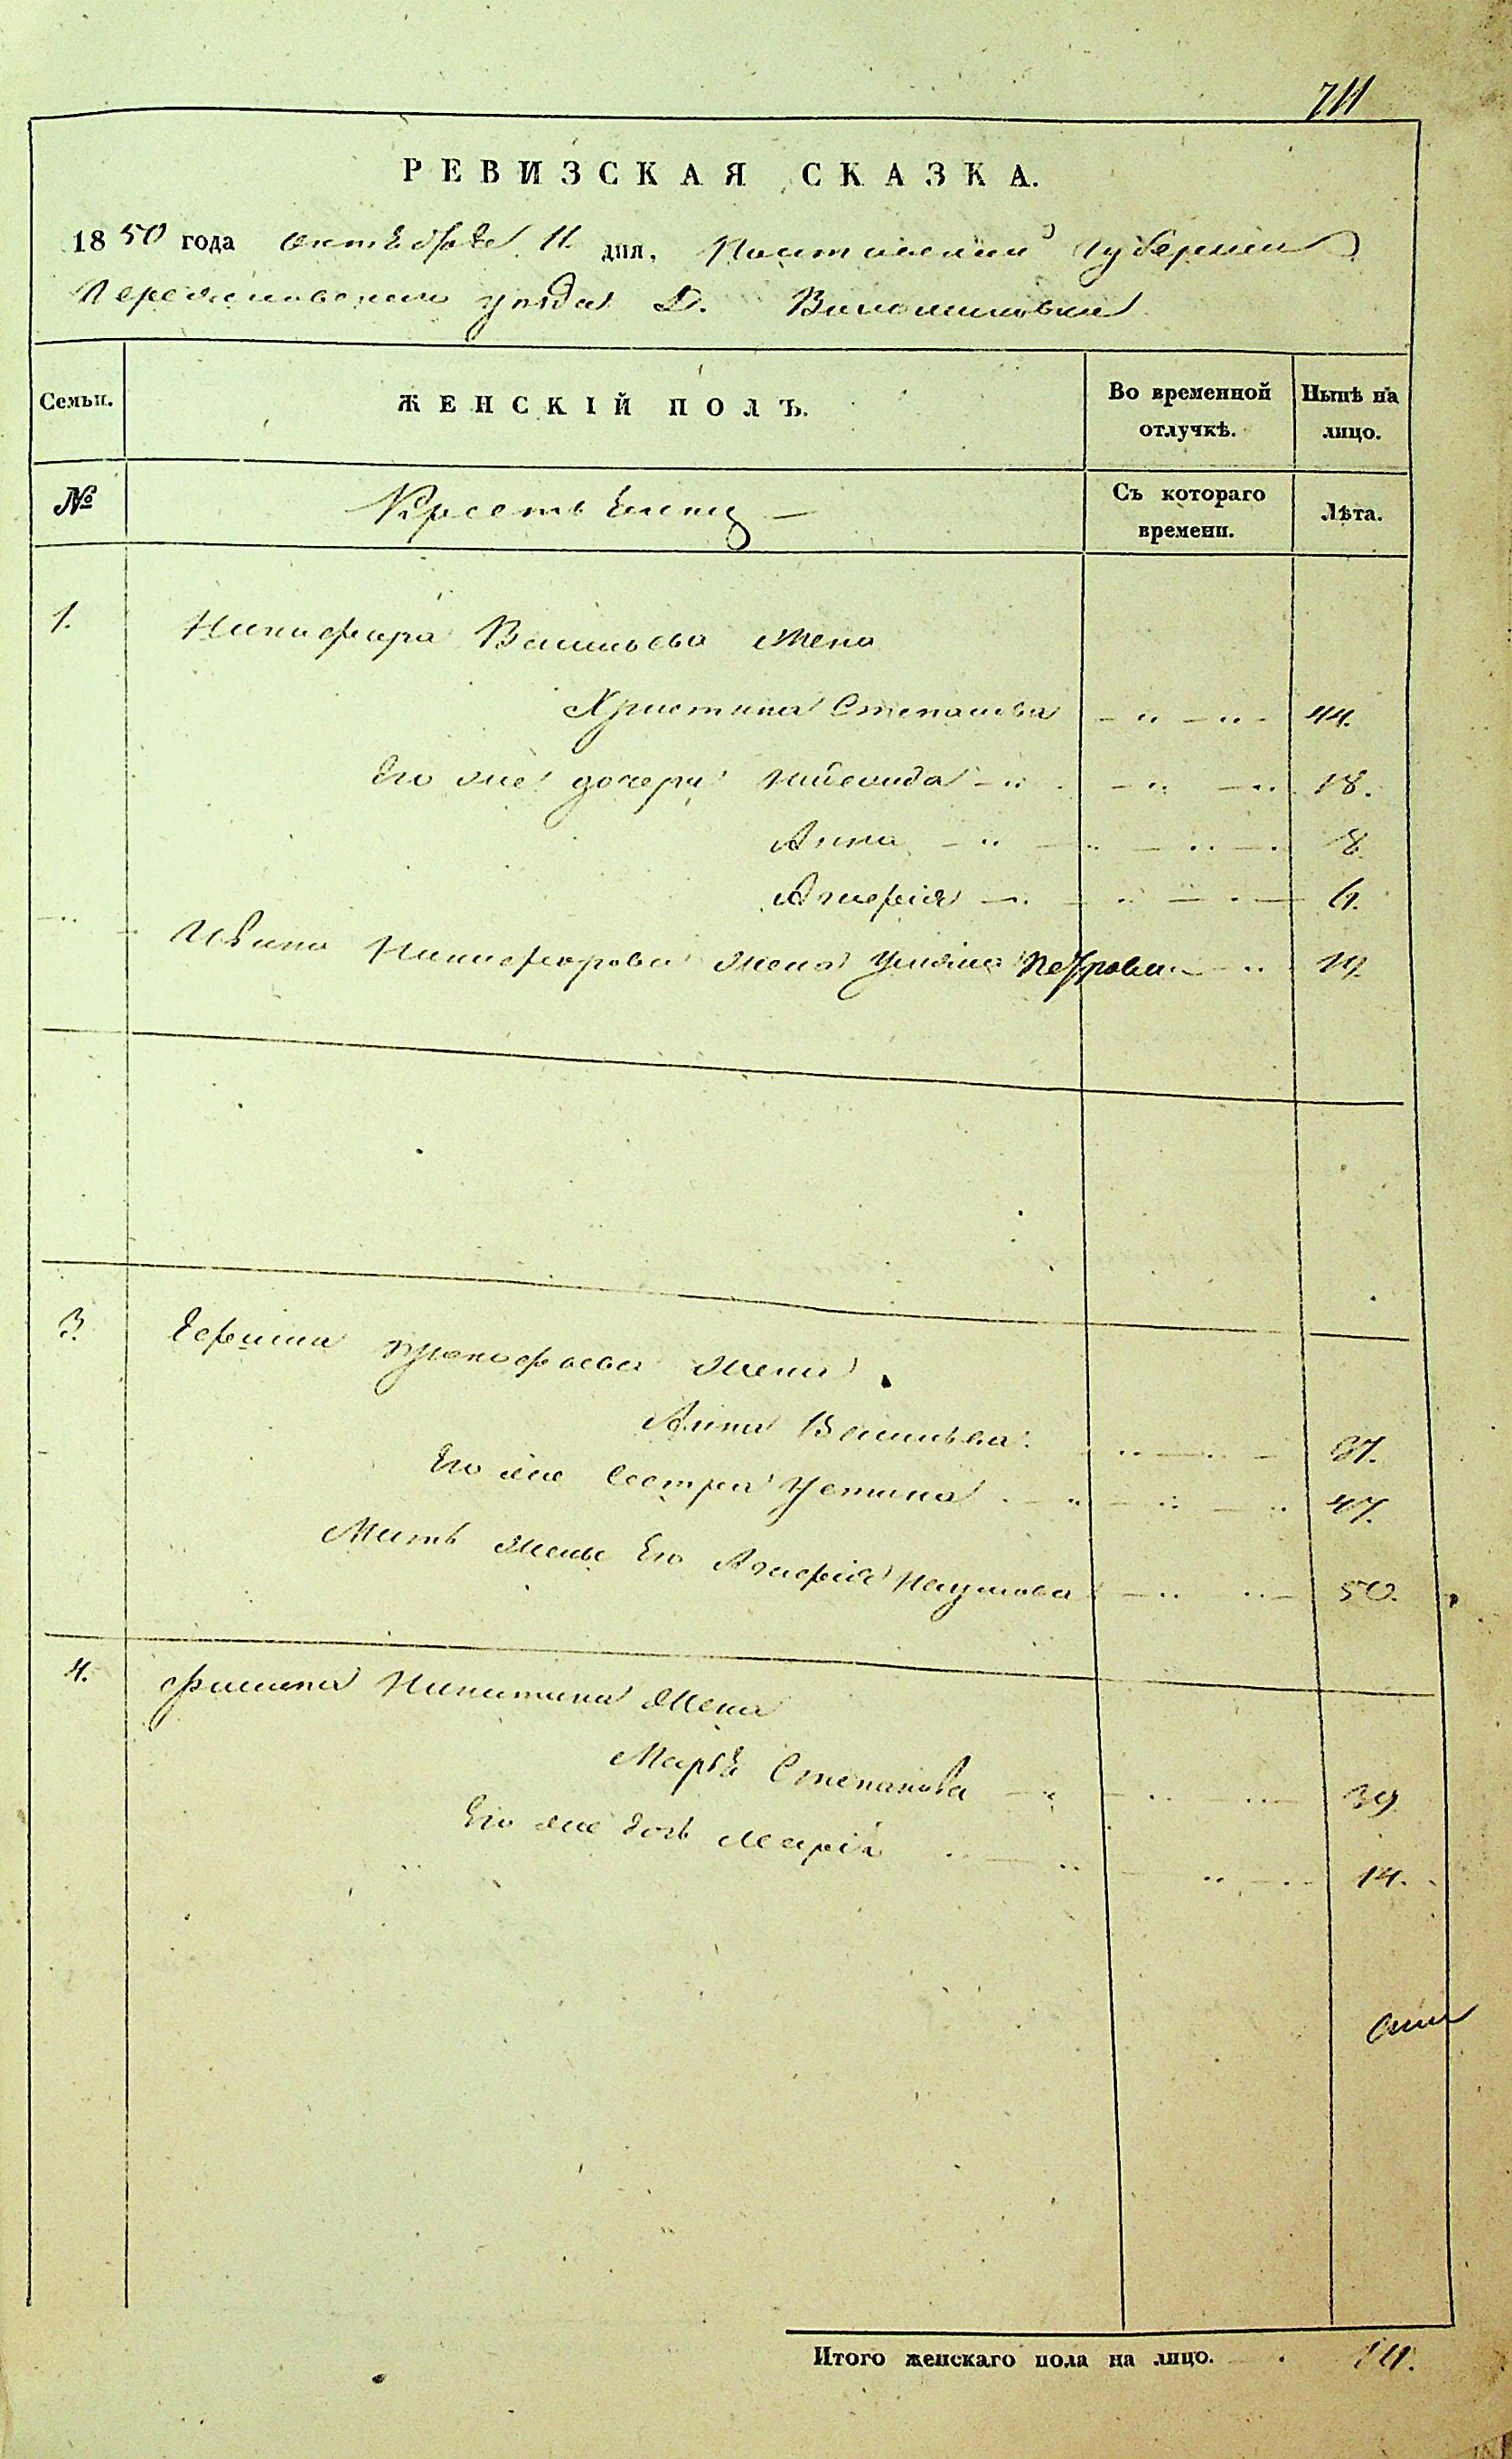 711
РЕВИЗСКАЯ СКАЗКА.
1850 года Октября 11 дня, Полтавской Губернии
Переяславского уезда Д. Виноминовки
Семьи. ЖЕНСКІЙ ПОЛЪ. Во временной отлучкѣ. Нынѣ на лицо.
№ Крестьянец Съ котораго времени. Лѣта.
1. Никифора Васильева Жена
Христина Степанова 44.
Его же дочери 18.
Анна 8.
Агафія 6.
Ивана Никифорова жена Ульяна Петрова 19.
3. Ефима Прокофьева жена
Анна Васильева 37.
Его же Сестра Устина 47.
Мать жены Его Агафія Наумова 50.
4. Филипа Никитина Жена
Марья Степанова 39
Его же дочь Марія 14.
Итого женскаго пола на лицо.